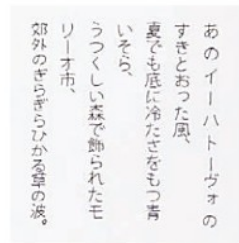 あのイーハトーヴォの
すきとおった風、
夏でも底に冷たさをもつ青
いそら、
うつくしい森で飾られたモ
リーオ市、
郊外のぎらぎらひかる草の波。